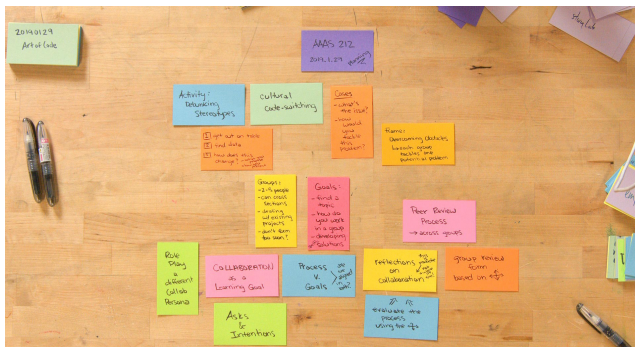 20190129
Art of Code
AAAS 212
2019.1.29
Activity:
Debunking
Stereotypes
Cultural
Code-switching
Cases
- what's
the issue?
- how
would
you
tackle
this
problem?
1 get out on table
2 find data
3 how does this
change?
Frame:
overcoming obstacles
each group
tackles one
potential problem
Groups:
- 2-5 people
- can cross
sections
- existing
projects
- don't form
too soon?
Goals:
- find a
topic
- how do
you work
in a group
- developing
solutions
Peer Review
Process
→ across groups
Role
Play
a
different
Collab
Persona
COLLABORATION
as a
Learning Goal
Process
v.
Goals
reflections
on
collaboration
group review
form
based on
Asks
&
Intentions
Evaluate the
process
using the